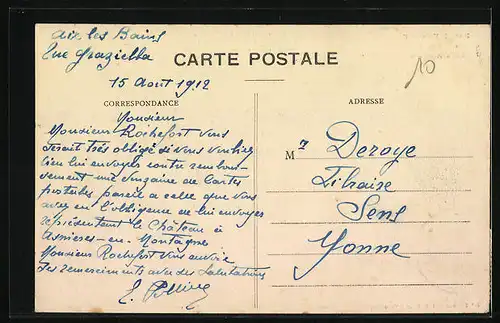 Aix les Bains
Rue Graziella
CARTE POSTALE
15 Aout 1912
10
CORRESPONDANCE
Monsieur
Monsieur Rochefort vous
serait très obligé si vous vouliez
bien lui envoyer contre rembour-
sement une douzaine de Cartes
postales pareil a celle que vous
avez eu l'obligence de lui envoyer
représentant le Château à
Asnières-en-Montagne
Monsieur Rochefort vous envoie
ses remerciments avec des Salutations
ADRESSE
Mr Deroye
Libraire
Sens
Yonne